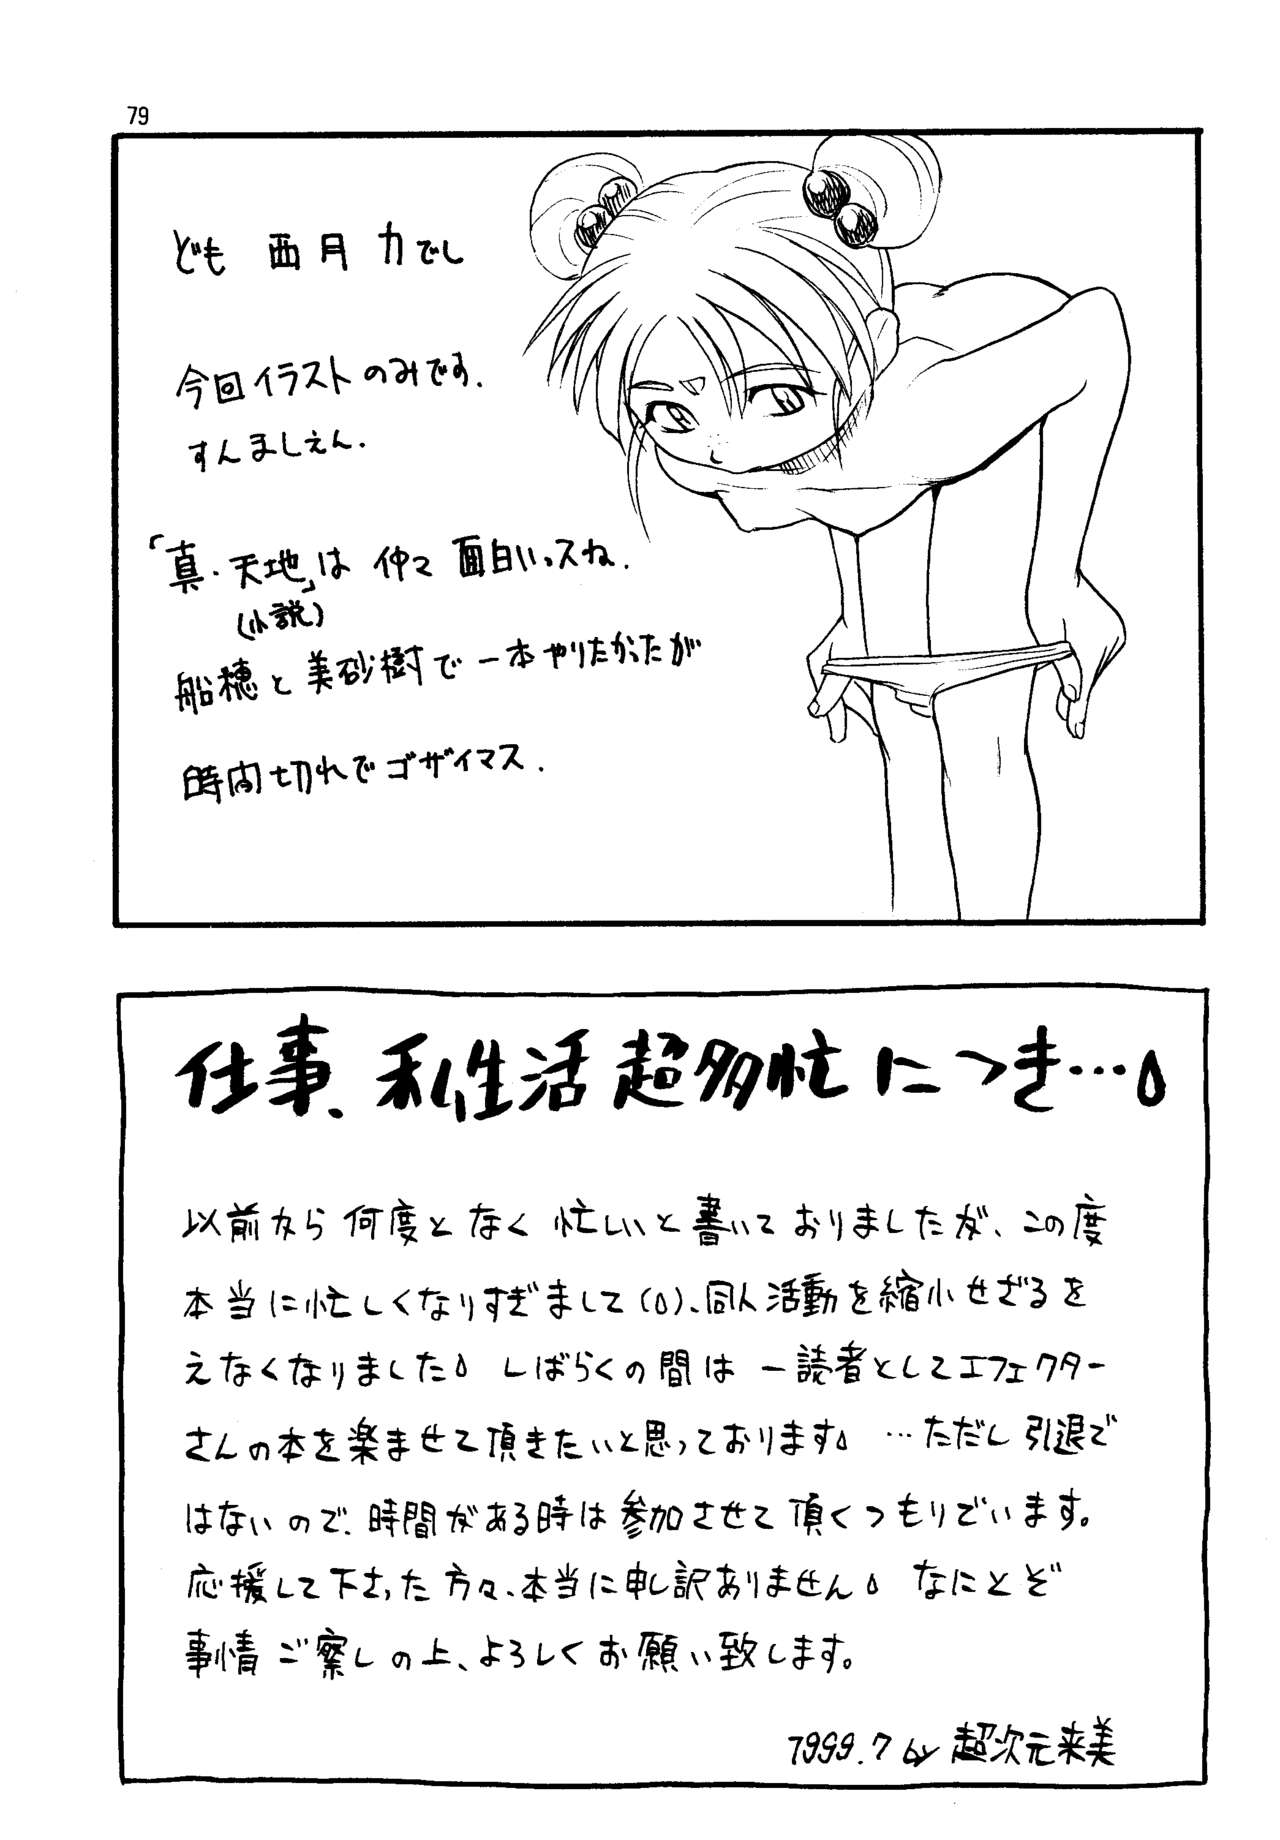 79
ども 西月力でし
今回イラストのみです.
すんましえん.
「真・天地」は 仲々 面白いっスね.
(小説)
船穂と美砂樹で一本やりたかったが
時間切れでゴザイマス.
仕事、私生活超多忙につき…
以前から何度となく忙しいと書いておりましたが、この度
本当に忙しくなりすぎまして()、同人活動を縮小せざるを
えなくなりました しばらくの間は一読者としてエフェクター
さんの本を楽ませて頂きたいと思っております …ただし引退で
はないので、時間がある時は参加させて頂くつもりでいます。
応援して下さった方々、本当に申し訳ありません なにとぞ
事情ご察しの上、よろしくお願い致します。
1999.7 by 超次元来美